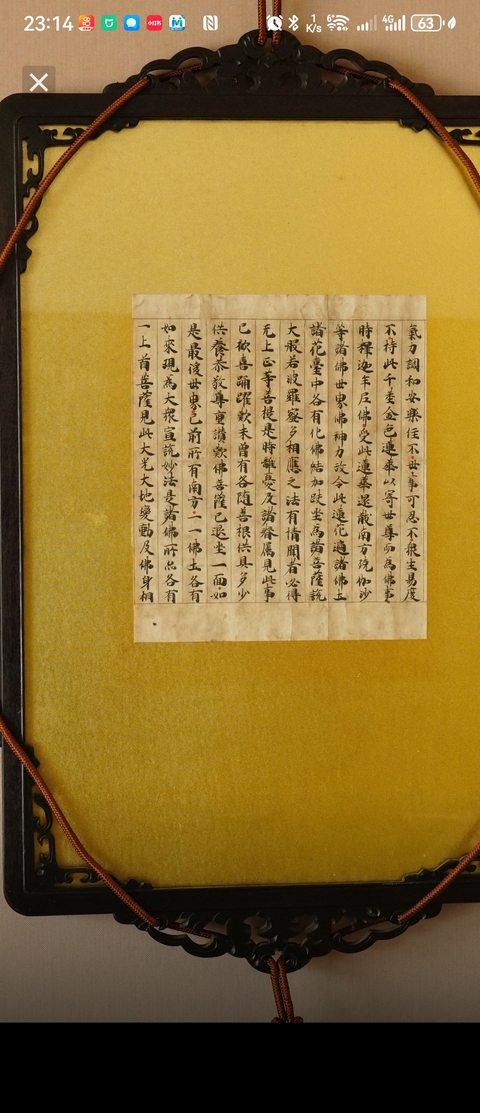 23:14
1 K/s
6
4G
63
氣力調和安樂住不世事可忍不衆生易度
不持此千莖金色蓮華以寄世尊而為佛事
時釋迦牟尼佛受此蓮華還散南方殑伽沙
等諸佛世界佛神力故令此蓮花遍諸佛土
諸花臺中各有化佛結加趺坐為諸菩薩說
大般若波羅蜜多相應之法有情聞者必得
无上正等菩提是時離憂及諸眷屬見此事
已歡喜踊躍歎未曾有各隨善根供具多少
供養恭敬尊重讚歎佛菩薩已退坐一面如
是最後世界已前所有南方一一佛土各有
如來現為大衆宣說妙法是諸佛所亦各有
一上首菩薩見此大光大地變動及佛身相